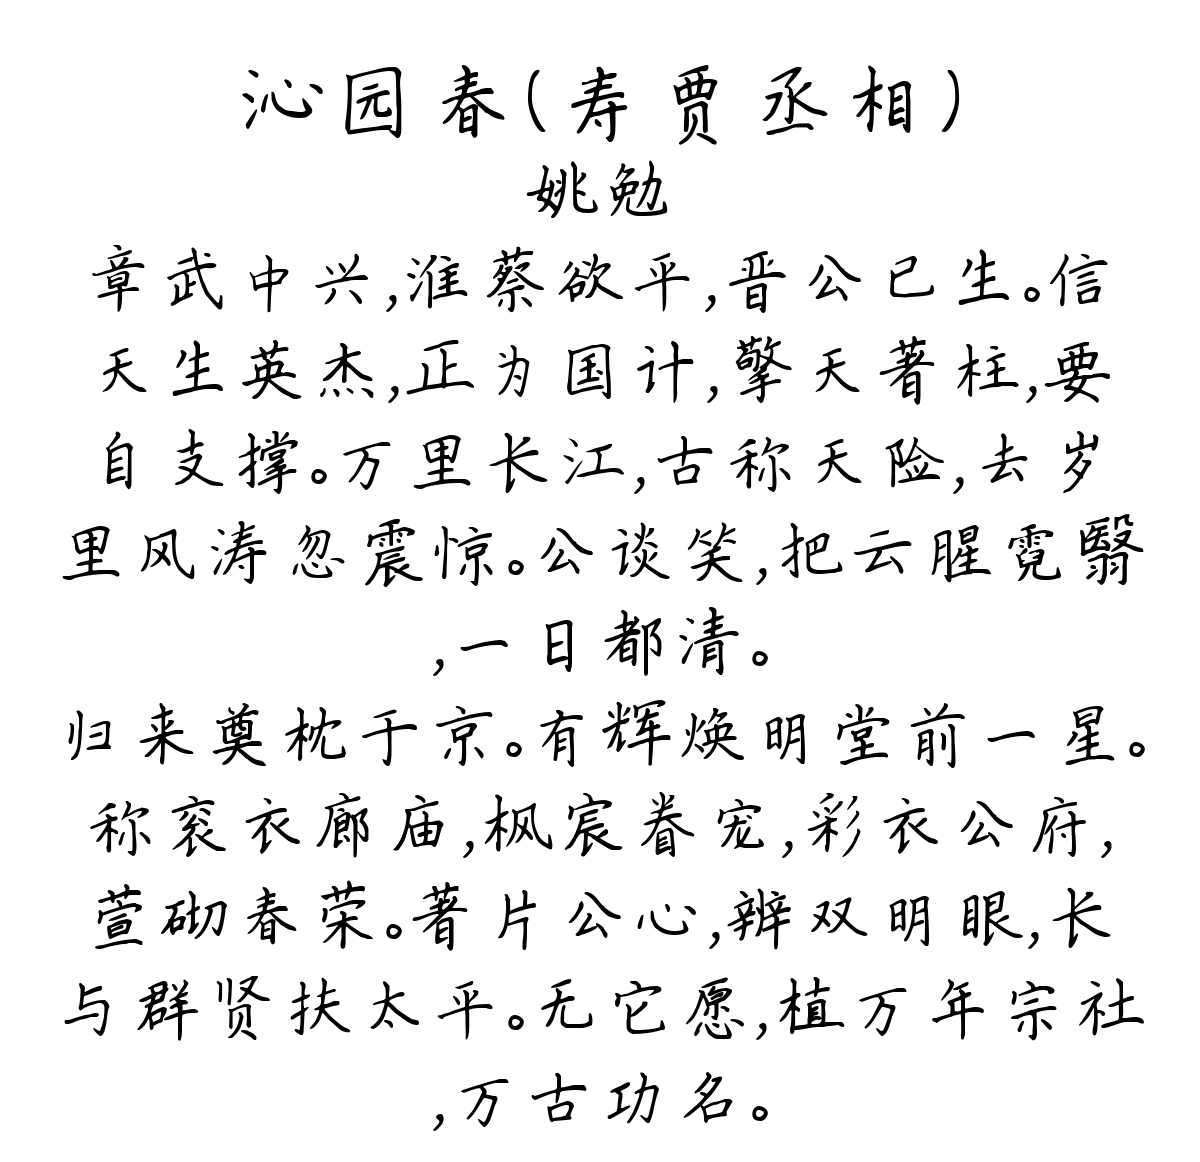 沁园春(寿贾丞相)
姚勉
章武中兴,淮蔡欲平,晋公已生。信
天生英杰,正为国计,擎天著柱,要
自支撑。万里长江,古称天险,去岁
里风涛忽震惊。公谈笑,把云腥霓翳
,一日都清。
归来奠枕于京。有辉焕明堂前一星。
称衮衣廊庙,枫宸眷宠,彩衣公府,
萱砌春荣。著片公心,辨双明眼,长
与群贤扶太平。无它愿,植万年宗社
,万古功名。